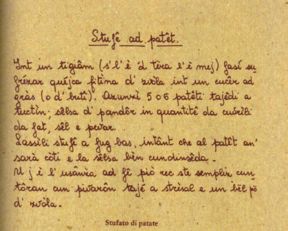 Stufé ad patêt.
Int un tigiâm (s'l'è 'd tëra l'è mej) fasì su
frézar quéjca fitina d' zvòla int un cucér ad
gràs (o d' buti). Azunzì 5 o 6 patêti tajêdi a
tuctin: sêlsa d' pandôr in quantitê da cuérili
da fat, sêl e pévar.
Lassìli stufé a fug bas, intânt che al patît an'
sarà côti e la sêlsa bén cundinsêda.
U j è l'usânza ad fê piò réc ste semplic cun
tôran cun pivarôn tajé a strisul e un bël pò
d' zvòla.
Stufato di patate